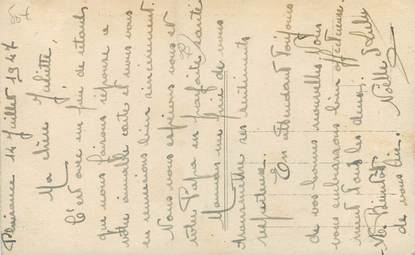 Plaisance 14 Juillet 1947
Ma chère Juliette,
C'est avec un peu de retard
que nous faisons réponse à
votre aimable carte et nous vous
en remercions bien sincèrement.
Nous vous espérons vous et
votre Papa en parfaite santé
Maman me fait de vous
transmettre ses sentiments
respectueux.
En attendant toujours
de vos bonnes nouvelles Nous
vous embrassons bien affectueuse-
ment tous les deux.
de vous lire.